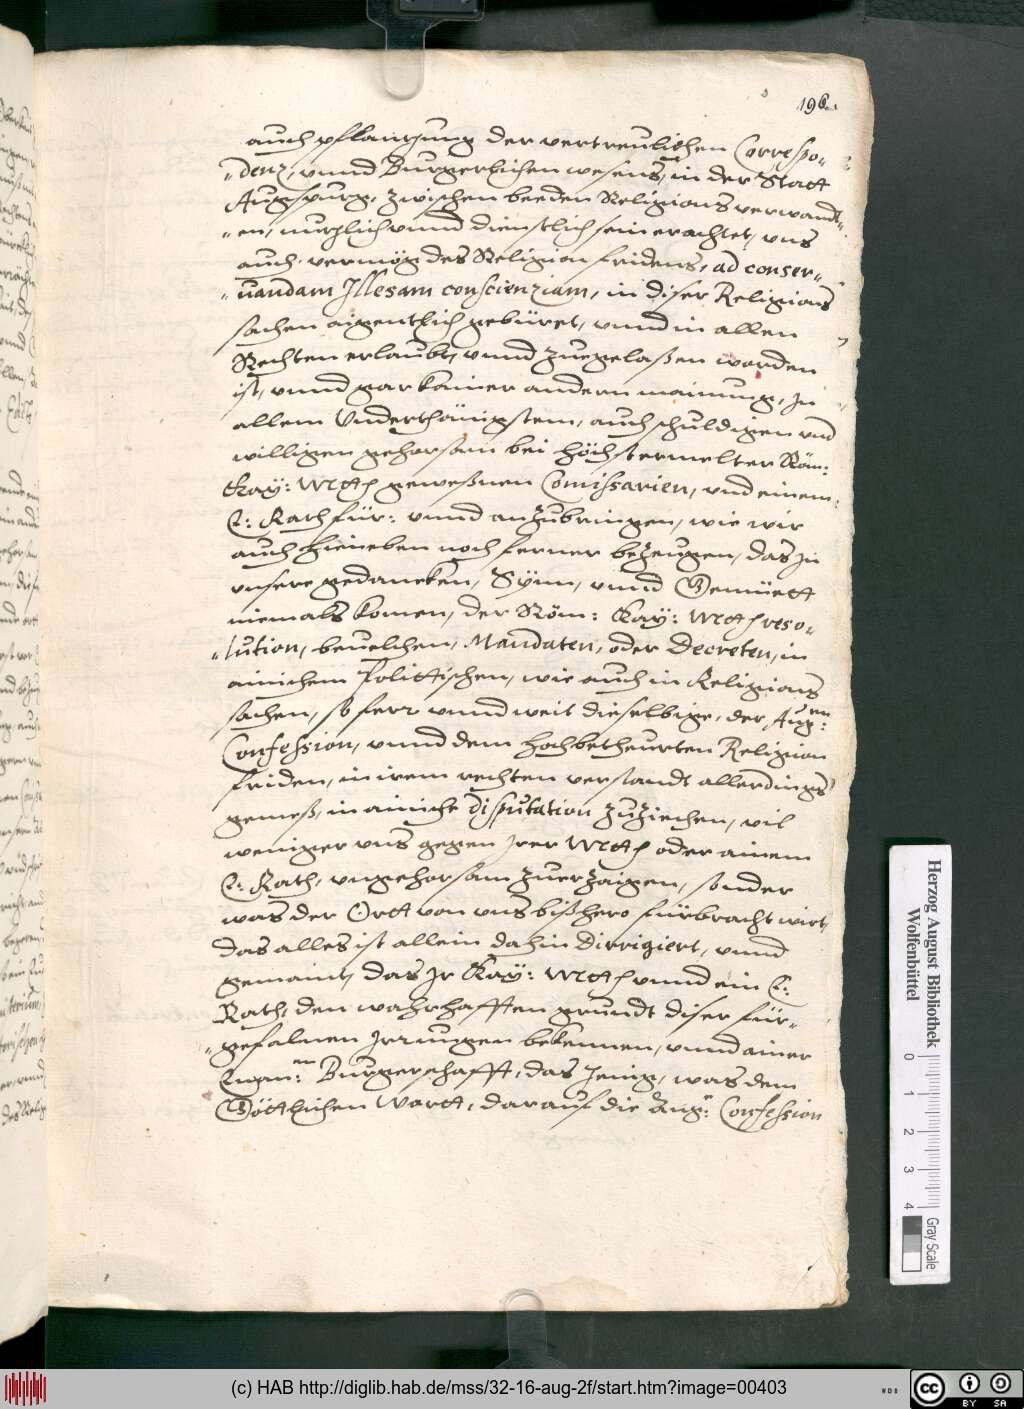 196.
auch pflantzung der vertreulichen Correspo-
denz, vnnd Burgerlichen wesens, in der Statt
Augspurg, zwischen beeden Religions verwandt-
en, nutzlich vnnd dienstlich sein erachtet, vns
auch vermög des Religion fridens, ad conser-
uandam Illesam conscienziam, in diser Religions
sachen aigentlich gebüret, vnnd in allen
Rechten erlaubt, vnnd zuegelaßen worden
ist, vnnd gar kainer andern mainung, in
allem Vnderthänigstem, auch schuldigen vnd
willigen gehorsam bei höchstermelter Röm:
Kay: Mtt geweßnen Comissarien, vnd einem
E: Rath für: vnnd anzubringen, wie wir
auch hieneben noch ferner bezeugen, das in
vnsere gedancken, Synn, vnnd Gemüett
niemals komen, der Röm: Kay: Mtt reso-
lution, beuelchen, Mandaten, oder Decreten, in
ainichem Polittischen, wie auch in Religions
sachen, so ferr vnnd weit dieselbige, der Aug:en
Confession, vnnd dem hochbetheurten Religion
friden, in irem rechten verstandt allerdings
gemeß, in ainiche disputation zuziechen, vil
weniger vns gegen Irer Mtt oder ainem
E: Rath, vngehorsam zuerzaigen, sonder
was der Ortt von vns bißhero fürbracht wirt,
das alles ist allein dahin dirrigiert, vnnd
gemaint, das Ir Kay: Mtt vnnd ein E:
Rath, den wahrhafften grundt diser für-
gefalnen Irrungen bekennen, vnnd ainer
Euan:en Burgerschafft, das Jenig, was dem
Göttlichen Wortt, darauf die Aug: Confession
Herzog August Bibliothek
Wolfenbüttel
0
1
2
3
4
Gray Scale
(c) HAB http://diglib.hab.de/mss/32-16-aug-2f/start.htm?image=00403
WDB
cc
BY SA